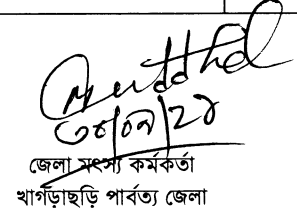 ৩০/০৯/২১
জেলা মৎস্য কর্মকর্তা
খাগড়াছড়ি পার্বত্য জেলা